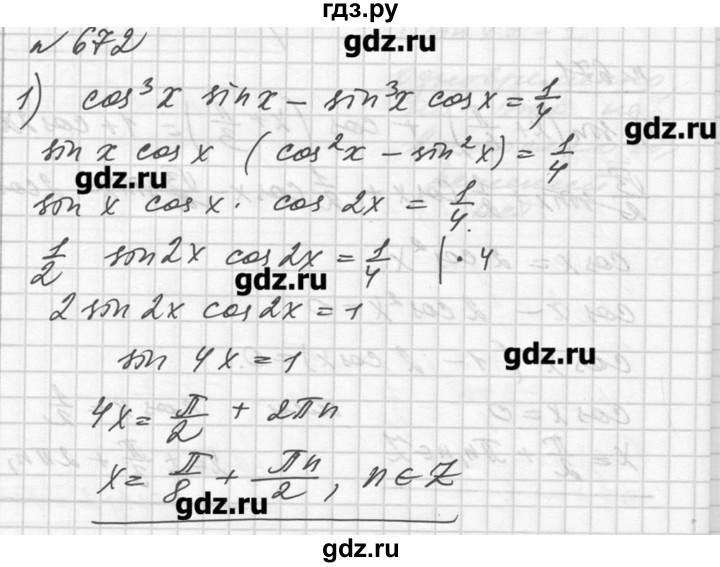 гдз.ру
№ 672
gdz.ru
1) cos³x sinx − sin³x cosx = 1/4
gdz.ru
sin x cos x (cos²x − sin²x) = 1/4
gdz.ru
sin x cos x · cos 2x = 1/4.
1/2 sin2x cos2x = 1/4 | · 4
gdz.ru
2 sin 2x cos2x = 1
sin 4x = 1
gdz.ru
4x = π/2 + 2πn
x = π/8 + πn/2, n ∈ Z
gdz.ru
gdz.ru